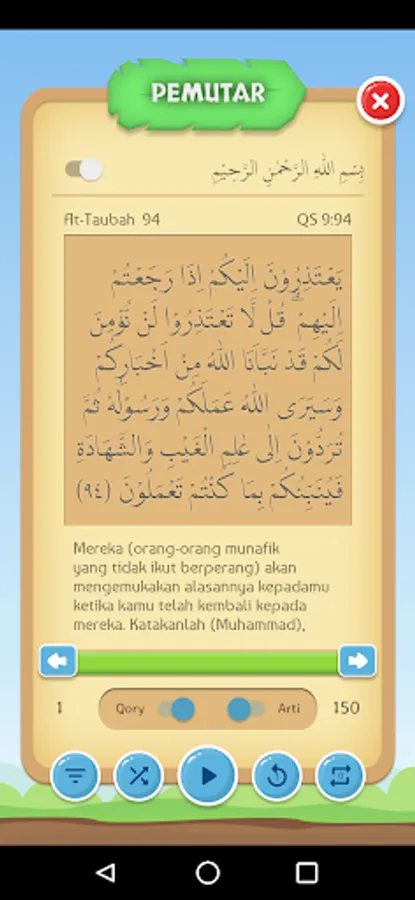 PEMUTAR
بِسْمِ اللهِ الرَّحْمٰنِ الرَّحِيْمِ
At-Taubah 94 QS 9:94
يَعْتَذِرُوْنَ اِلَيْكُمْ اِذَا رَجَعْتُمْ
اِلَيْهِمْ ۗ قُلْ لَّا تَعْتَذِرُوْا لَنْ نُّؤْمِنَ
لَكُمْ قَدْ نَبَّاَنَا اللّٰهُ مِنْ اَخْبَارِكُمْ
وَسَيَرَى اللّٰهُ عَمَلَكُمْ وَرَسُوْلُهٗ ثُمَّ
تُرَدُّوْنَ اِلٰى عٰلِمِ الْغَيْبِ وَالشَّهَادَةِ
فَيُنَبِّئُكُمْ بِمَا كُنْتُمْ تَعْمَلُوْنَ (٩٤)
Mereka (orang-orang munafik
yang tidak ikut berperang) akan
mengemukakan alasannya kepadamu
ketika kamu telah kembali kepada
mereka. Katakanlah (Muhammad),
1 Qory Arti 150